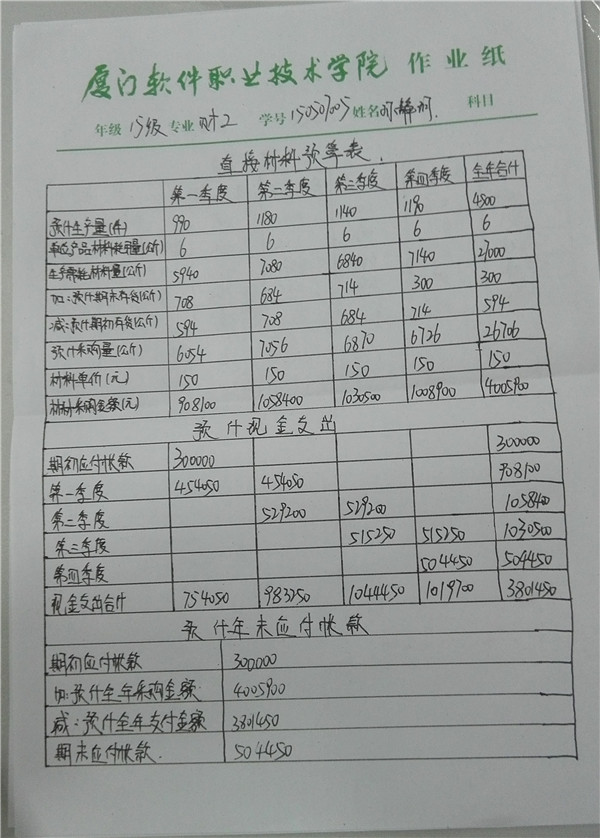 厦门软件职业技术学院 作业纸
年级 15级 专业 财2 学号 15050305 姓名 科目
直接材料预算表.
第一季度 第二季度 第三季度 第四季度 全年合计
预计生产量(件) 990 1180 1140 1190 4500
单位产品材料耗用量(公斤) 6 6 6 6 6
生产需耗材料量(公斤) 5940 7080 6840 7140 27000
加:预计期末存货(公斤) 708 684 714 300 300
减:预计期初存货(公斤) 594 708 684 714 594
预计采购量(公斤) 6054 7056 6870 6726 26706
材料单价(元) 150 150 150 150 150
材料采购金额(元) 908100 1058400 1030500 1008900 4005900
预计现金支出
期初应付帐款 300000 300000
第一季度 454050 454050 908100
第二季度 529200 529200 1058400
第三季度 515250 515250 1030500
第四季度 504450 504450
现金支出合计 754050 983250 1044450 1019700 3801450
预计年末应付帐款
期初应付帐款 300000
加:预计全年采购金额 4005900
减:预计全年支付金额 3801450
期末应付帐款. 504450